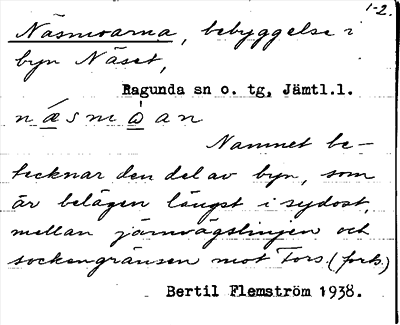 1-2.
Näsmoarna, bebyggelse i
byn Näset,
Ragunda sn o. tg, Jämtl.l.
nǽ̲smò̲an
Namnet be-
tecknar den del av byn, som
är belägen längst i sydost,
mellan järnvägslinjen och
sockengränsen mot Fors. (forts.)
Bertil Flemström 1938.